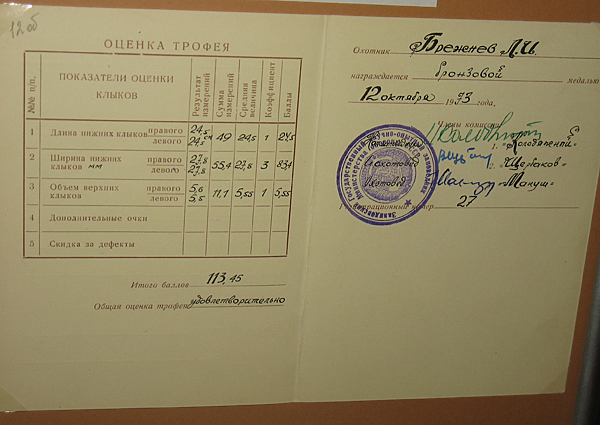 12 об
ОЦЕНКА ТРОФЕЯ
№№ п/п. ПОКАЗАТЕЛИ ОЦЕНКИ КЛЫКОВ Результат измерений Сумма измерений Средняя величина Коэффициент Баллы
1 Длина нижних клыков правого 24,5 49 24,5 1 24,5
левого 24,5 см
2 Ширина нижних правого 27,8 55,4 27,8 3 83,4
клыков мм левого
3 Объем верхних правого 5,6 11,1 5,55 1 5,55
клыков левого 5,5
4 Дополнительные очки
5 Скидка за дефекты
Итого баллов 113,45
Общая оценка трофея удовлетворительно
Охотник Брежнев Л.И.
награждается бронзовой медалью
12 октября 1973 года,
Члены комиссии
Охотовед 2. Щербаков
Охотовед Мануш
Регистрационный номер 27